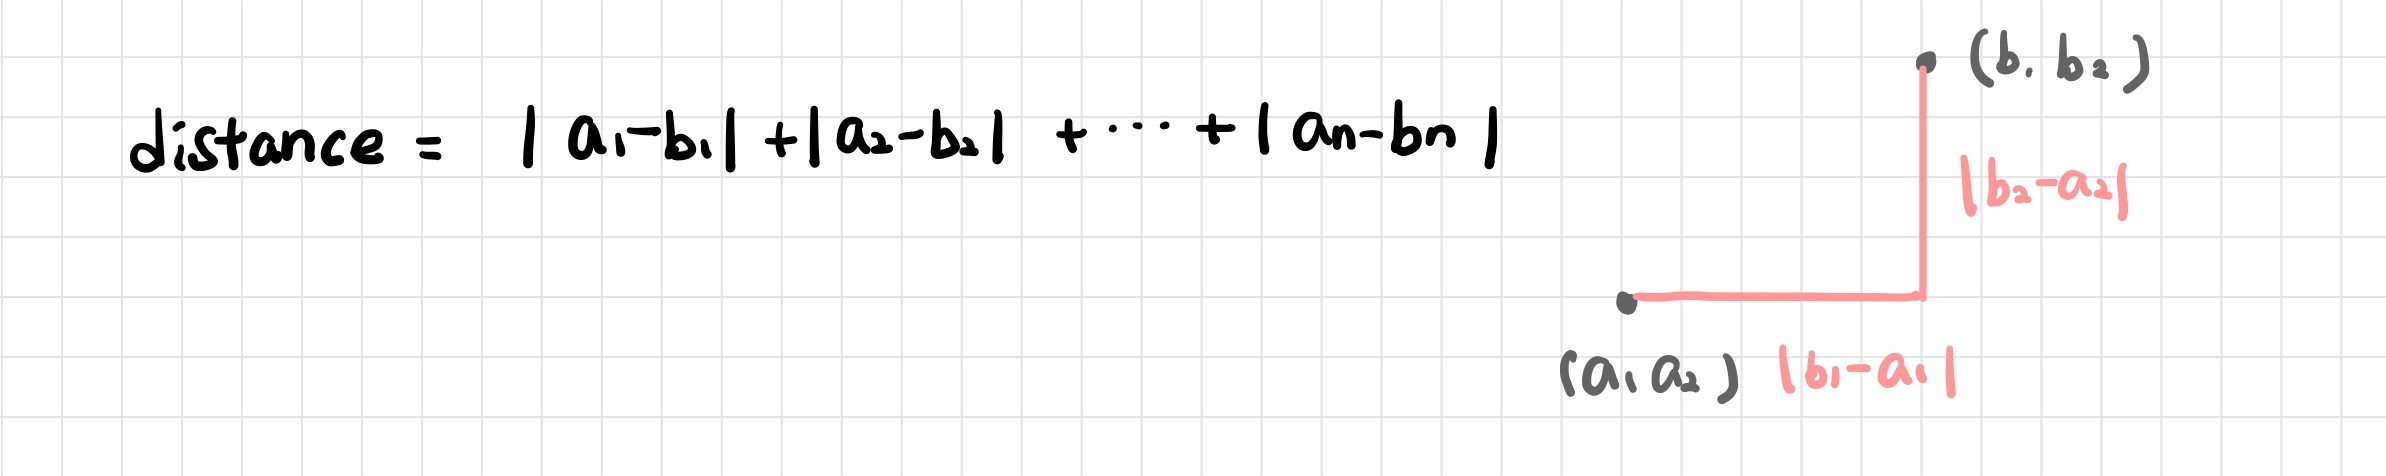 distance = |a₁-b₁| + |a₂-b₂| + ··· + |an-bn|
(b₁ b₂)
|b₂-a₂|
(a₁ a₂) |b₁-a₁|